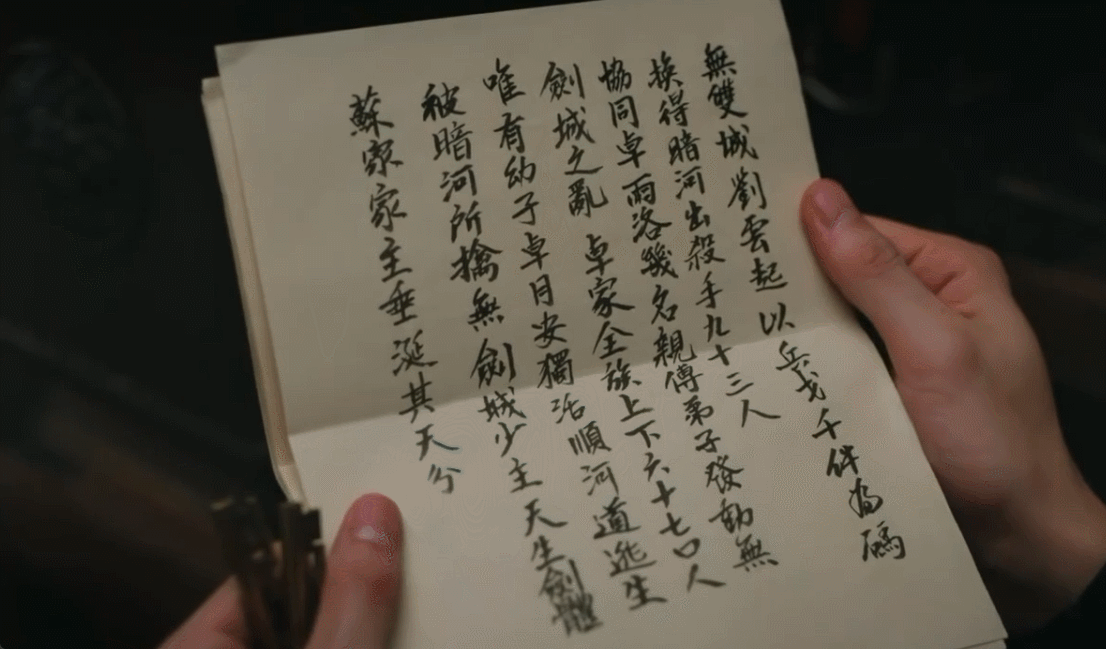 無雙城劉雲起以兵戈千件為碼
換得暗河出殺手九十三人
協同卓雨洛幾名親傳弟子發動無
劍城之亂 卓家全族上下六十七口人
唯有幼子卓月安獨活順河道逃生
被暗河所擒無劍城少主天生劍體
蘇家家主垂涎其天分